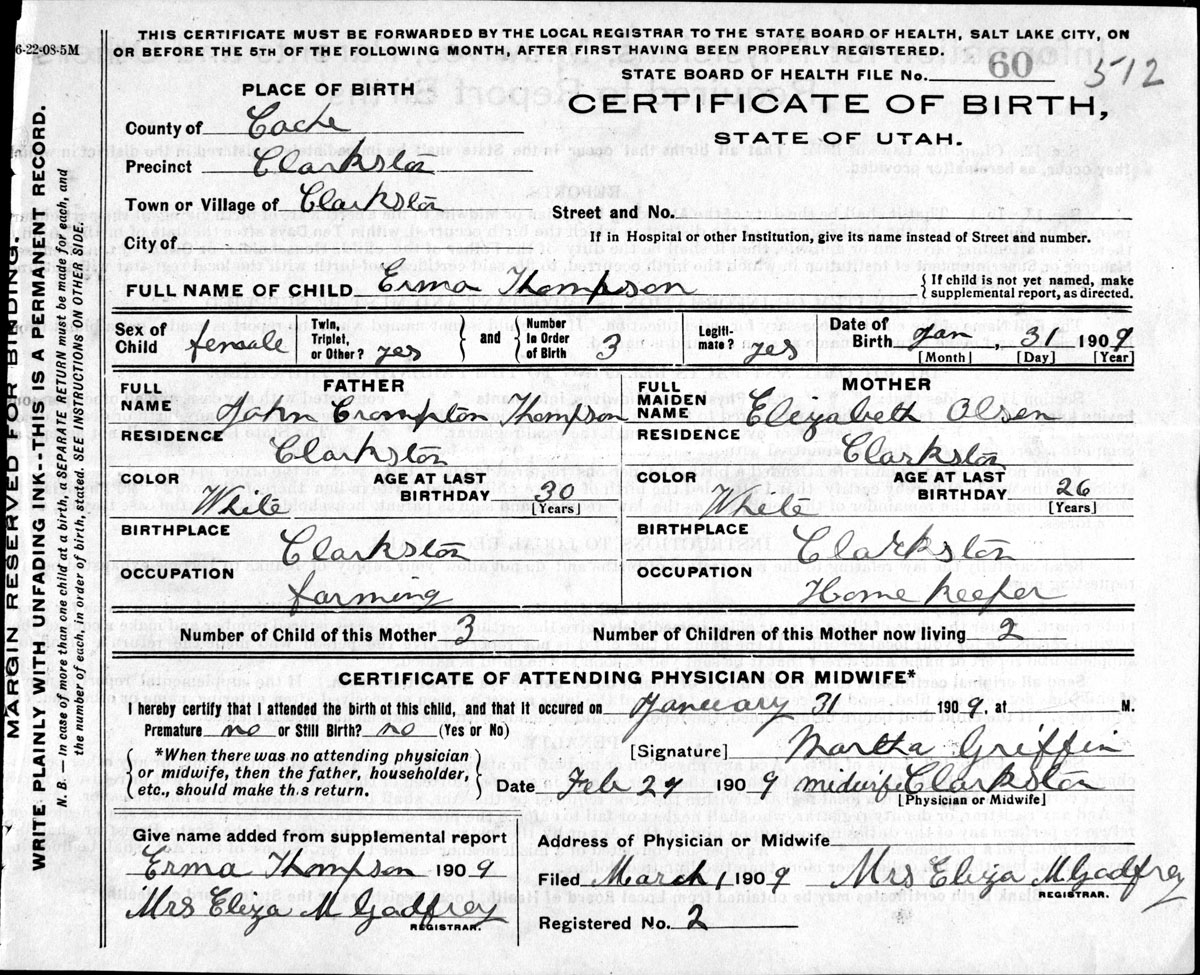 6-22-08-5M
THIS CERTIFICATE MUST BE FORWARDED BY THE LOCAL REGISTRAR TO THE STATE BOARD OF HEALTH, SALT LAKE CITY, ON
OR BEFORE THE 5TH OF THE FOLLOWING MONTH, AFTER FIRST HAVING BEEN PROPERLY REGISTERED.
STATE BOARD OF HEALTH FILE No. 60 512
CERTIFICATE OF BIRTH,
STATE OF UTAH.
PLACE OF BIRTH
County of Cache
Precinct Clarkston
Town or Village of Clarkston
Street and No.
City of
If in Hospital or other Institution, give its name instead of Street and number.
FULL NAME OF CHILD Erma Thompson
{ If child is not yet named, make
supplemental report, as directed.
Sex of Child female
Twin, Triplet, or Other? yes } and { Number In Order of Birth 3
Legiti- mate? yes
Date of Birth Jan., 31 1909
[Month] [Day] [Year]
FATHER
FULL NAME John Crompton Thompson
RESIDENCE Clarkston
COLOR White AGE AT LAST BIRTHDAY 30 [Years]
BIRTHPLACE Clarkston
OCCUPATION farming
MOTHER
FULL MAIDEN NAME Elizabeth Olsen
RESIDENCE Clarkston
COLOR White AGE AT LAST BIRTHDAY 26 [Years]
BIRTHPLACE Clarkston
OCCUPATION Home keeper
Number of Child of this Mother 3 Number of Children of this Mother now living 2
CERTIFICATE OF ATTENDING PHYSICIAN OR MIDWIFE*
I hereby certify that I attended the birth of this child, and that it occured on January 31 1909, at M.
Premature no or Still Birth? no (Yes or No)
{ *When there was no attending physician
or midwife, then the father, householder,
etc., should make this return. }
[Signature] Martha Griffin
Date Feb 27 1909 midwife Clarkston
[Physician or Midwife]
Give name added from supplemental report
Erma Thompson 1909
Mrs Eliza M Godfrey
REGISTRAR.
Address of Physician or Midwife
Filed March 1 1909 Mrs Eliza M Godfrey
REGISTRAR.
Registered No. 2
MARGIN RESERVED FOR BINDING.
WRITE PLAINLY WITH UNFADING INK---THIS IS A PERMANENT RECORD.
N. B.—In case of more than one child at a birth, a SEPARATE RETURN must be made for each, and
the number of each, in order of birth, stated. SEE INSTRUCTIONS ON OTHER SIDE.